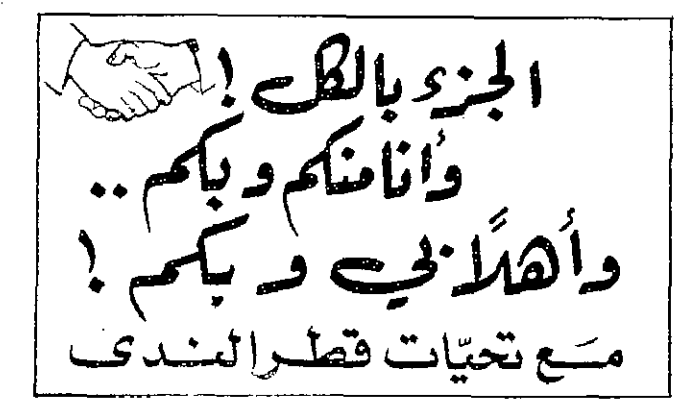 الجزء بالكل !
وأنا منكم وبكم ..
وأهلاً بي وبكم !
مَع تحيّات قطر الندى